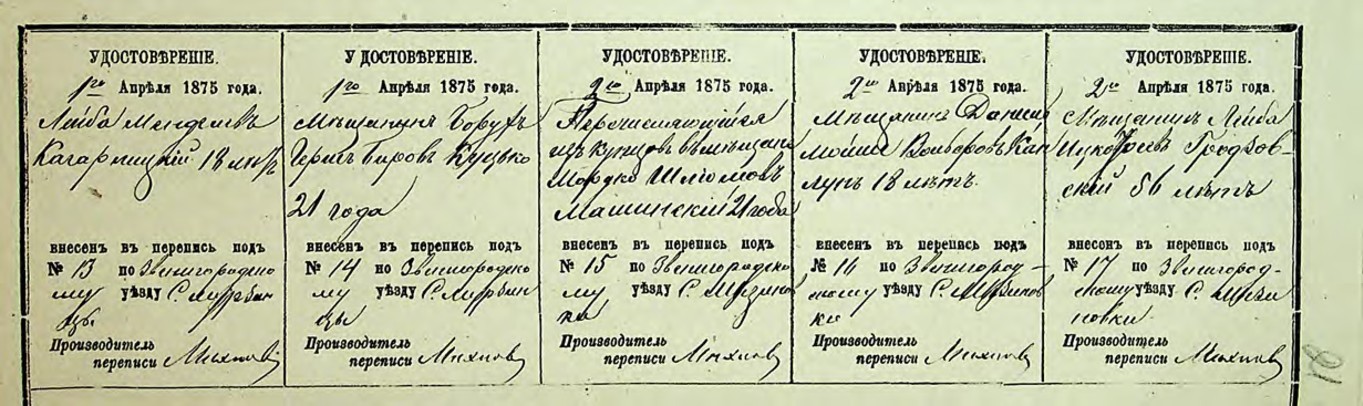 УДОСТОВѢРЕНІЕ.
1го Апрѣля 1875 года.
Лейба Менделевъ
Кагарлицкій 18 лѣтъ
внесенъ въ перепись подъ
№ 13 по Звенигородско
му уѣзду С.
Производитель
переписи
УДОСТОВѢРЕНІЕ.
1го Апрѣля 1875 года.
Мѣщанинъ Борухъ
Гершъ Бировъ Куцько
21 года
внесенъ въ перепись подъ
№ 14 по Звенигородско
му уѣзду С.
Производитель
переписи
УДОСТОВѢРЕНІЕ.
2го Апрѣля 1875 года.
Перечисляющійся
изъ купцовъ въ мѣщане
Мордко Шлиомовъ
Машинскій 21 года
внесенъ въ перепись подъ
№ 15 по Звенигородско
му уѣзду С. Мурзинов
ки
Производитель
переписи
УДОСТОВѢРЕНІЕ.
2го Апрѣля 1875 года.
Мѣщанинъ Даніил
Мойше Волборовъ Кап
лунъ 18 лѣтъ.
внесенъ въ перепись подъ
№ 16 по Звенигород-
скому уѣзду С. Мурзинов
ки
Производитель
переписи
УДОСТОВѢРЕНІЕ.
2го Апрѣля 1875 года.
Мѣщанинъ Лейба
Ицковъ Гродзов-
скій 56 лѣтъ
внесенъ въ перепись подъ
№ 17 по Звенигород-
скому уѣзду С. Мурзи
новки
Производитель
переписи